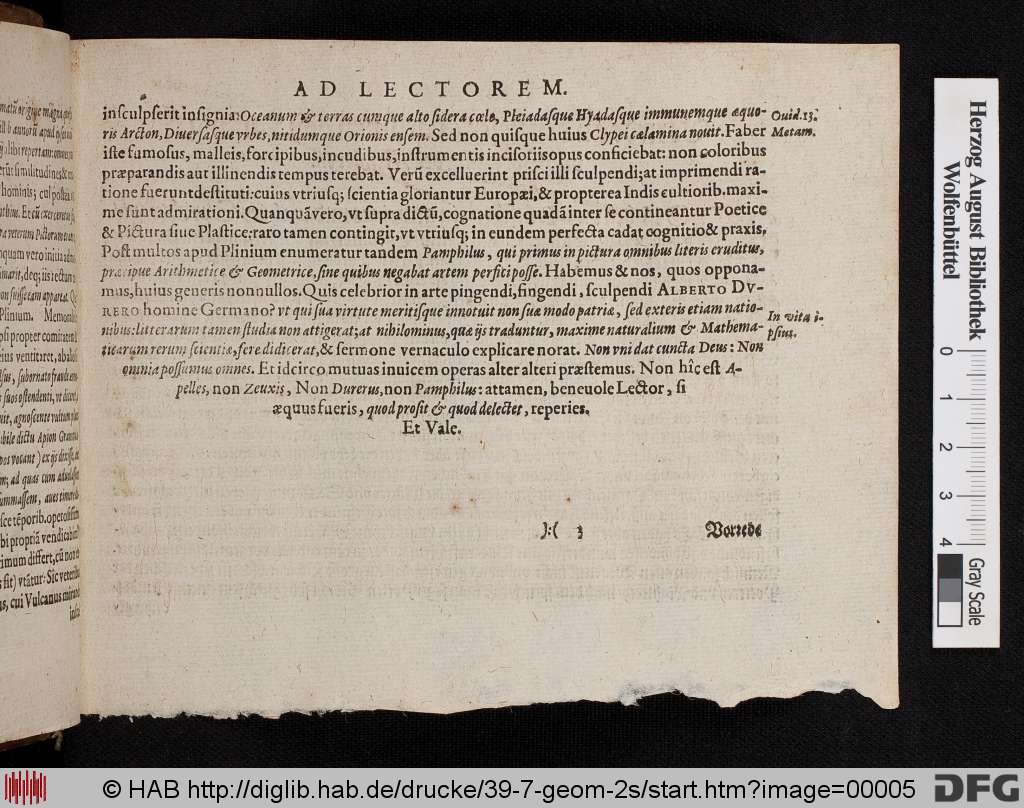 AD LECTOREM.
insculpserit insignia: Oceanum & terras cumque alto sidera cœlo, Pleiadasque Hyadasque immunemque æquo-
ris Arcton, Diuersasque vrbes, nitidumque Orionis ensem. Sed non quisque huius Clypei cælamina nouit. Faber
Ouid. 13.
Metam.
iste famosus, malleis, forcipibus, incudibus, instrumentis incisoriis opus conficiebat: non coloribus
præparandis aut illinendis tempus terebat. Verũ excelluerint prisci illi sculpendi; at imprimendi ra-
tione fuerunt destituti: cuius vtriusq; scientia gloriantur Europæi, & propterea Indis cultiorib. maxi-
me sunt admirationi. Quanquã vero, vt supra dictũ, cognatione quadã inter se contineantur Poetice
& Pictura siue Plastice: raro tamen contingit, vt vtriusq; in eundem perfecta cadat cognitio & praxis.
Post multos apud Plinium enumeratur tandem Pamphilus, qui primus in pictura omnibus literis eruditus,
præcipue Arithmetice & Geometrice, sine quibus negabat artem perfici posse. Habemus & nos, quos oppona-
mus, huius generis nonnullos. Quis celebrior in arte pingendi, fingendi, sculpendi ALBERTO DV-
RERO homine Germano? vt qui sua virtute meritisque innotuit non suæ modo patriæ, sed exteris etiam natio-
nibus: litterarum tamen studia non attigerat; at nihilominus, quæ ijs traduntur, maxime naturalium & Mathema-
In vita i-
psius.
ticarum rerum scientiæ, fere didicerat, & sermone vernaculo explicare norat. Non vni dat cuncta Deus: Non
omnia possumus omnes. Et idcirco mutuas inuicem operas alter alteri præstemus. Non hîc est A-
pelles, non Zeuxis, Non Durerus, non Pamphilus: attamen, beneuole Lector, si
æquus fueris, quod prosit & quod delectet, reperies.
Et Vale.
):( 3 Vorrede
Herzog August Bibliothek
Wolfenbüttel
0 1 2 3 4
Gray Scale
© HAB http://diglib.hab.de/drucke/39-7-geom-2s/start.htm?image=00005
DFG